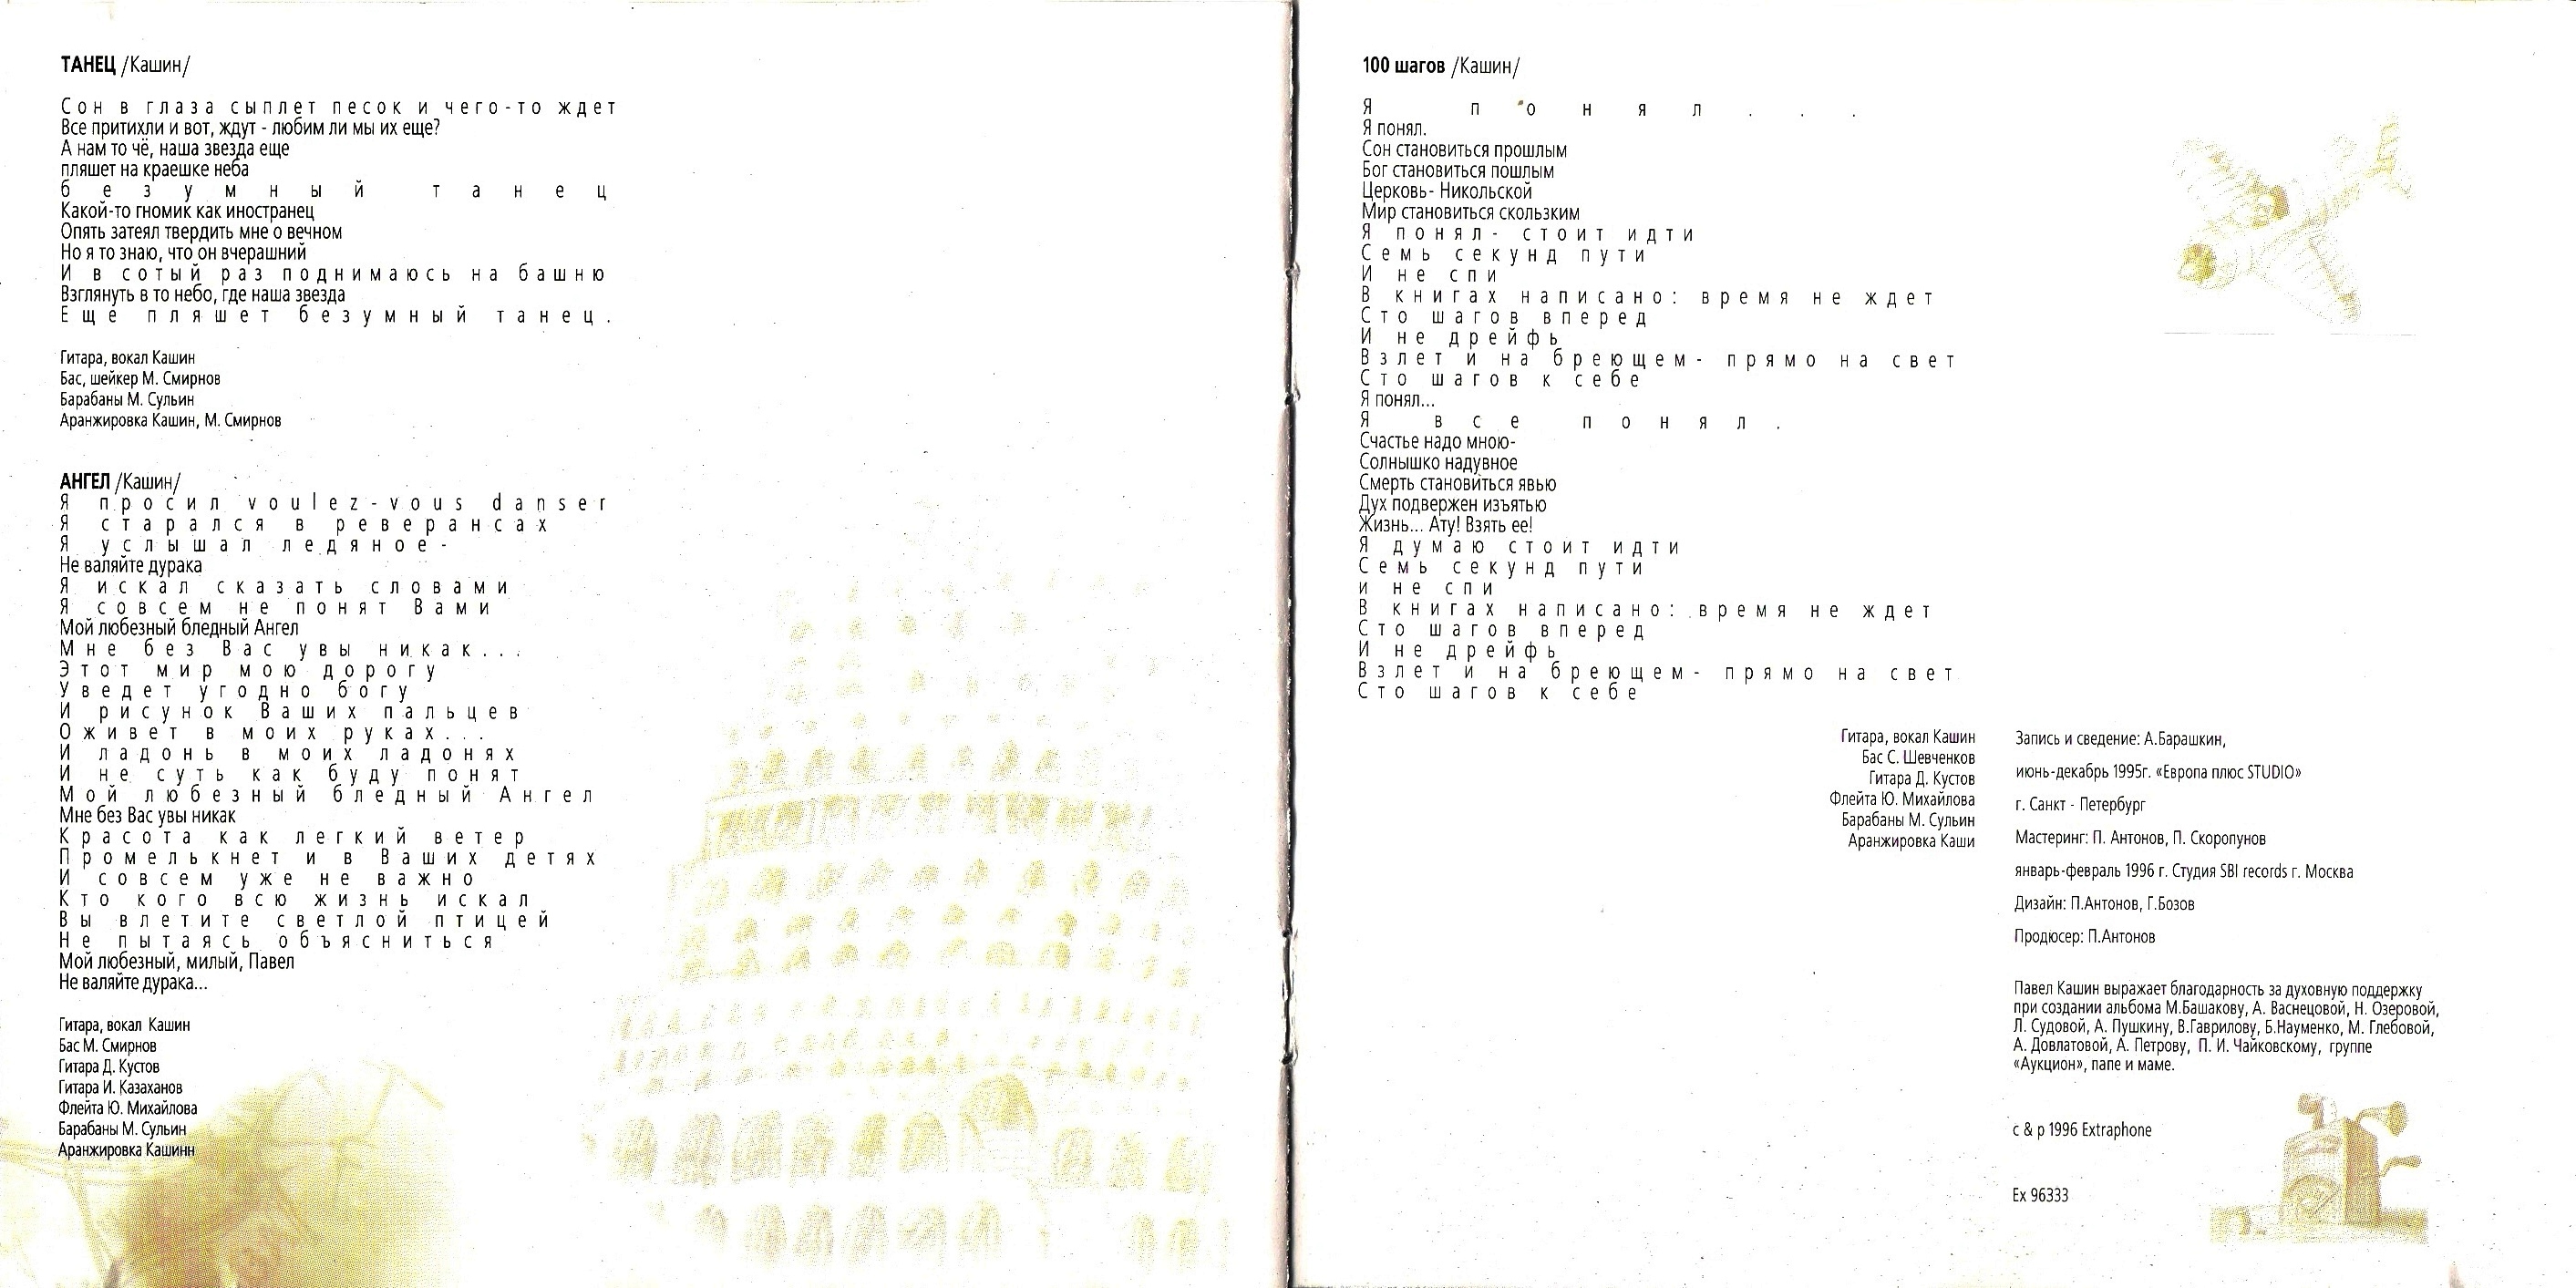 ТАНЕЦ /Кашин/
Сон в глаза сыплет песок и чего-то ждет
Все притихли и вот, ждут - любим ли мы их еще?
А нам то чё, наша звезда еще
пляшет на краешке неба
безумный танец
Какой-то гномик как иностранец
Опять затеял твердить мне о вечном
Но я то знаю, что он вчерашний
И в сотый раз поднимаюсь на башню
Взглянуть в то небо, где наша звезда
Еще пляшет безумный танец.
Гитара, вокал Кашин
Бас, шейкер М. Смирнов
Барабаны М. Сульин
Аранжировка Кашин, М. Смирнов
АНГЕЛ /Кашин/
Я просил voulez-vous danser
Я старался в реверансах
Я услышал ледяное-
Не валяйте дурака
Я искал сказать словами
Я совсем не понят Вами
Мой любезный бледный Ангел
Мне без Вас увы никак...
Этот мир мою дорогу
Уведет угодно богу
И рисунок Ваших пальцев
Оживет в моих руках...
И ладонь в моих ладонях
И не суть как буду понят
Мой любезный бледный Ангел
Мне без Вас увы никак
Красота как легкий ветер
Промелькнет и в Ваших детях
И совсем уже не важно
Кто кого всю жизнь искал
Вы влетите светлой птицей
Не пытаясь объясниться
Мой любезный, милый, Павел
Не валяйте дурака...
Гитара, вокал Кашин
Бас М. Смирнов
Гитара Д. Кустов
Гитара И. Казаханов
Флейта Ю. Михайлова
Барабаны М. Сульин
Аранжировка Кашинн
100 шагов /Кашин/
Я понял...
Я понял.
Сон становиться прошлым
Бог становиться пошлым
Церковь- Никольской
Мир становиться скользким
Я понял- стоит идти
Семь секунд пути
И не спи
В книгах написано: время не ждет
Сто шагов вперед
И не дрейфь
Взлет и на бреющем- прямо на свет
Сто шагов к себе
Я понял...
Я все понял.
Счастье надо мною-
Солнышко надувное
Смерть становиться явью
Дух подвержен изъятью
Жизнь... Ату! Взять ее!
Я думаю стоит идти
Семь секунд пути
и не спи
В книгах написано: время не ждет
Сто шагов вперед
И не дрейфь
Взлет и на бреющем- прямо на свет
Сто шагов к себе
Гитара, вокал Кашин
Бас С. Шевченков
Гитара Д. Кустов
Флейта Ю. Михайлова
Барабаны М. Сульин
Аранжировка Каши
Запись и сведение: А.Барашкин,
июнь-декабрь 1995г. «Европа плюс STUDIO»
г. Санкт - Петербург
Мастеринг: П. Антонов, П. Скоропунов
январь-февраль 1996 г. Студия SBI records г. Москва
Дизайн: П.Антонов, Г.Бозов
Продюсер: П.Антонов
Павел Кашин выражает благодарность за духовную поддержку
при создании альбома М.Башакову, А. Васнецовой, Н. Озеровой,
Л. Судовой, А. Пушкину, В.Гаврилову, Б.Науменко, М. Глебовой,
А. Довлатовой, А. Петрову, П. И. Чайковскому, группе
«Аукцион», папе и маме.
c & p 1996 Extraphone
Ex 96333